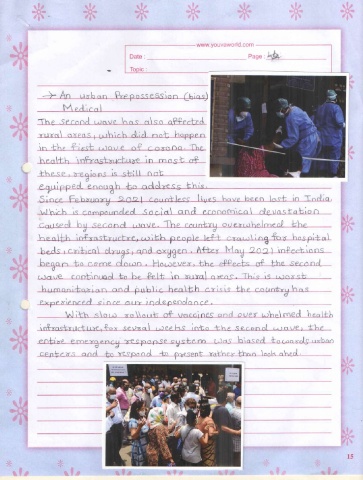 www.youvaworld.com
Date :
Page :
Topic :
→ An urban Prepossession (bias)
Medical
The second wave has also affected
rural areas, which did not happen
in the first wave of corona. The
health infrastructure in most of
these regions is still not
equipped enough to address this.
Since February 2021 countless lives have been lost in India,
which is compounded social and economical devastation
caused by second wave. The country overwhelmed the
health infrastructre, with people left crawling for hospital
beds, critical drugs, and oxygen. After May 2021 infections
began to come down. However, the effects of the second
wave continued to be felt in rural areas. This is worst
humanitarian and public health crisis the country has
experienced since our independence.
With slow rollout of vaccines and over whelmed health
infrastructure, for several weeks into the second wave, the
entire emergency response system was biased towards urban
centers and to respond to present rather than look ahead.
15